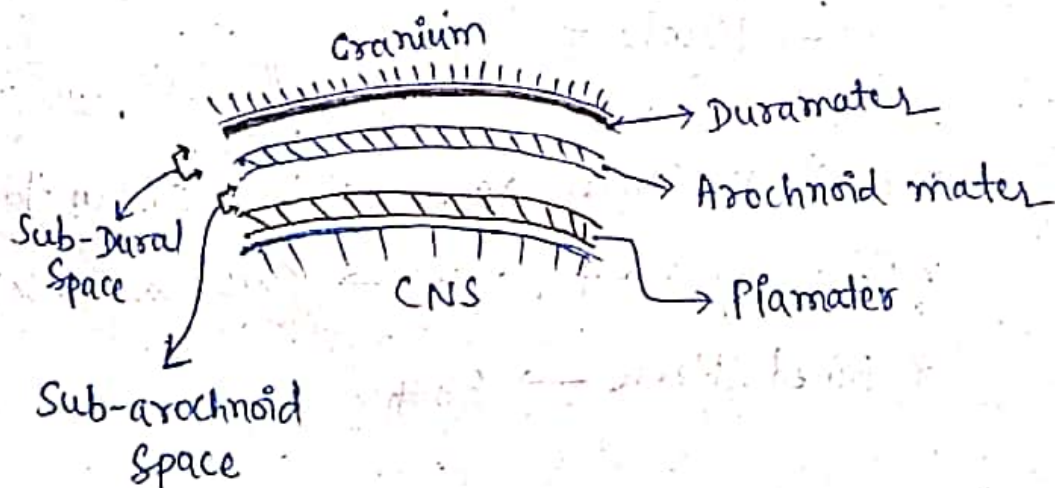 Cranium
Duramater
Arochnoid mater
Sub-Dural
Space
CNS
Piamater
Sub-arochnoid
Space